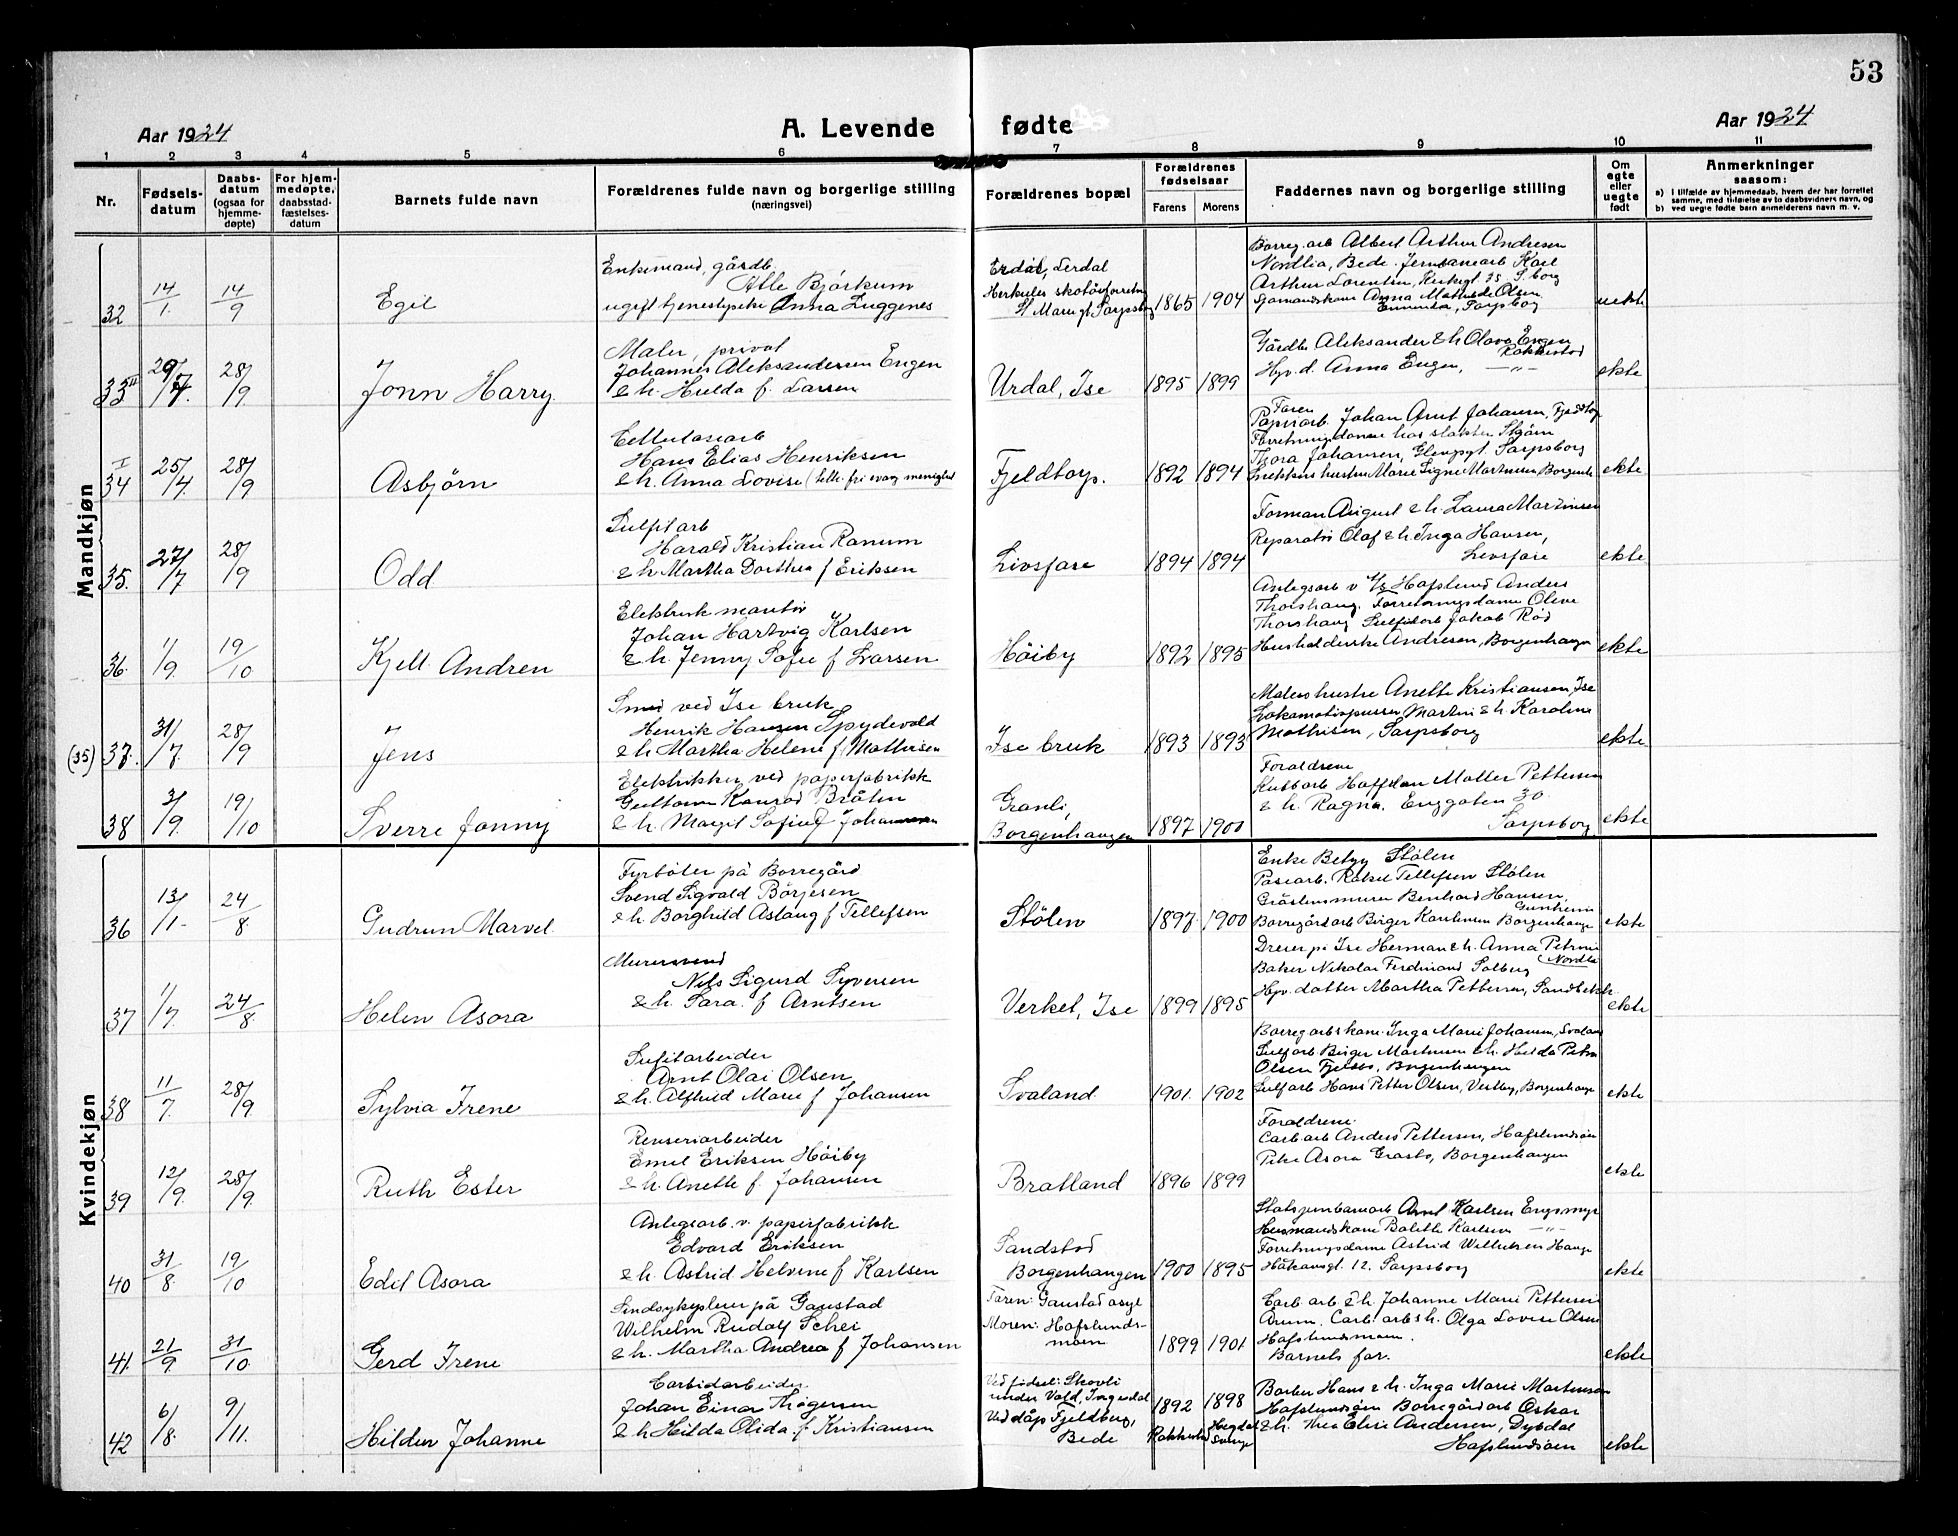 53
Aar 1924
A. Levende fødte
Aar 1924
1 2 3 4 5 6 7 8 9 10 11
Nr.
Fødsels-
datum
Daabs-
datum
(ogsaa for
hjemme-
døpte)
For hjem-
medøpte,
daabsstad-
fæstelses-
datum
Barnets fulde navn
Forældrenes fulde navn og borgerlige stilling
(næringsvei)
Forældrenes bopæl
Forældrenes
fødselsaar
Farens Morens
Faddernes navn og borgerlige stilling
Om
egte
eller
uegte
født
Anmerkninger
saasom:
a) i tilfælde av hjemmedaab, hvem der har forrettet
samme, med tilføielse av to daabsvidners navn, og
b) ved uegte fødte barn anmelderens navn m. v.
Mandkjøn
32 14/1. 14/9 Egil
Enkemand, gårdb.
Atle Bjørkum
ugift tjenestepike Anna Luggenes
Erdal, Lerdal
Herkules skotøiforretn
St Mariegt Sarpsborg 1865 1904
Borreg. arb Albert Arthur Andresen
Nordlia, Bede. Jernbanearb Karl
Arthur Lorentsen, Kirkegt 35 S.borg
Sjømandskone Anna Mathilde Olsen
Enninda, Sarpsborg uekte
33 29/4. 28/9 Jonn Harry
Maler, privat
Johannes Aleksandersen Engen
& h. Hulda f. Larsen
Urdal, Ise 1895 1899
Gårdbr Aleksander & h Olava Engen
Rakkestad
Hjv. d. Anna Engen, —"— ekte
34 25/4. 28/9 Asbjørn
Cellulosearb
Hans Elias Henriksen
& h. Anna Lovise (beth. fri evang menighed
Fjeldtorp. 1892 1894
Faren
Papirarb. Johan Arnt Johansen, Fjeldtorp
Forretningsdame hos slakter Skjørn
Thora Johansen, Glengsgt. Sarpsborg
Snekkers hustru Marie Signe Martinsen Borgenh. ekte
35. 27/7 28/9 Odd
Sulfitarb
Harald Kristian Ranum
& h Martha Dorthea f Eriksen
Livsfare 1894 1894
Forman August & h. Laura Martinsen
Reparatør Olaf & h. Inga Hansen,
Livsfare ekte
36. 1/9. 19/10 Kjell Andren
Elektrisk montør
Johan Hartvig Karlsen
& h. Jenny Sofie f Larsen
Höiby 1892 1895
Anlegsarb v A/S Hafslund Anders
Thorshaug. Forretningsdame Olive
Thorshaug Sulfidarb Jakob Rød
Husholderske Andresen, Borgenhaugen ekte
(35) 37. 31/7. 28/9 Jens
Smed ved Ise bruk
Henrik Hansen Spydevold
& h. Martha Helene f Mathisen
Ise bruk 1893 1893
Malers hustru Anette Kristiansen, Ise
Lokamotivpusser Martin & h. Karoline
Mathisen, Sarpsborg ekte
38 3/9. 19/10 Sverre Jonny
Elektrikker ved papirfabrikk
Guttorm Konrad Bråten
& h. Margit Sofie f Johannesen
Granli,
Borgenhaugen 1897 1900
Foraldrene
Kubbarb Haffdan Møller Pettersen
& h. Ragna, Enggaten 30.
Sarpsborg ekte
Kvindekjøn
36 13/11- 24/8. Gudrun Marvel
Fyrbøter på Borregård
Svend Sigvald Börjesen
& h. Borghild Aslaug f Tellefsen
Stölen 1897 1900
Enke Betzy Stölen
Pasearb. Rakel Tellefsen Stölen
Gråstensmurer Bernhard Hansen,
Borregårdarb Birger Karlsen Borgenhauge ekte
37 1/7. 24/8. Helen Asora
Murersvend
Nils Sigurd Syversen
& h. Sara. f Arntsen
Verket, Ise 1899 1895
Dreier på Ise Herman & h. Anna Petrine
(Nordli
Baker Nikolai Ferdinand Solberg
Hjv. datter Martha Pettersen, Sandbekk. ekte
38 11/7. 28/9. Sylvia Irene
Sufitarbeider
Arnt Olai Olsen
& h. Alfhild Marie f Johansen
Svaland 1901. 1902
Borregarbs kone. Inga Marie Johansen, Svaland
Sulfarb Birger Martinsen & h. Hilda Petra
Olsen Fjelsbo, Borgenhaugen
Sulfarb Hans Petter Olsen, Vestby, Borgenhauge ekte
39 12/9. 28/9. Ruth Ester
Renseriarbeider
Emil Eriksen Höiby
& h. Anette f. Johansen
Bratland 1896 1899
Foraldrene.
Carb. arb Anders Pettersen, Hafslundsöen
Pike Asora Grasto, Borgenhaugen ekte
40 31/8 19/10 Edit Asora
Anlegsarb. v. papirfabrikk
Edvard Eriksen
& h. Astrid Helvine f Karlsen
Sandstad
Borgenhaugen 1900 1895
Statsjernbanearb Arnt Karlsen Engsmyr
Husmandskone Bolette Karlsen —"—
Forretningsdame Astrid Willeksen Hauge
Håkonsgt. 12. Sarpsborg ekte
41. 21/9. 31/10 Gerd Irene
Sindsykepleier på Gaustad
Wilhelm Rudolf Schei
& h. Martha Andrea f Johansen
Faren: Gaustad asyl
Moren: Hafslunds-
moen 1899 1901
Carb arb & h. Johanne Marie Pettersen
Arum. Carb. arbs h. Olga Lovise Olsen
Hafslundsmoen.
Barnets far. ekte
42 6/8. 9/11. Hildur Johanne
Carbidarbeider
Johan Einar Thøgersen
& h Hilda Olida f Kristiansen
Ved födsel: Skovli
under Vold, Ingedal
Ved dåp Fjeldberg,
Bede 1892 1898
Rakkestad
Barber Hans & h. Inga Marie Martinsen
Hafslundsöen Borregårdarb Oskar
& h. Thea Elise Andersen, Dybdal
Hafslundsöen ekte